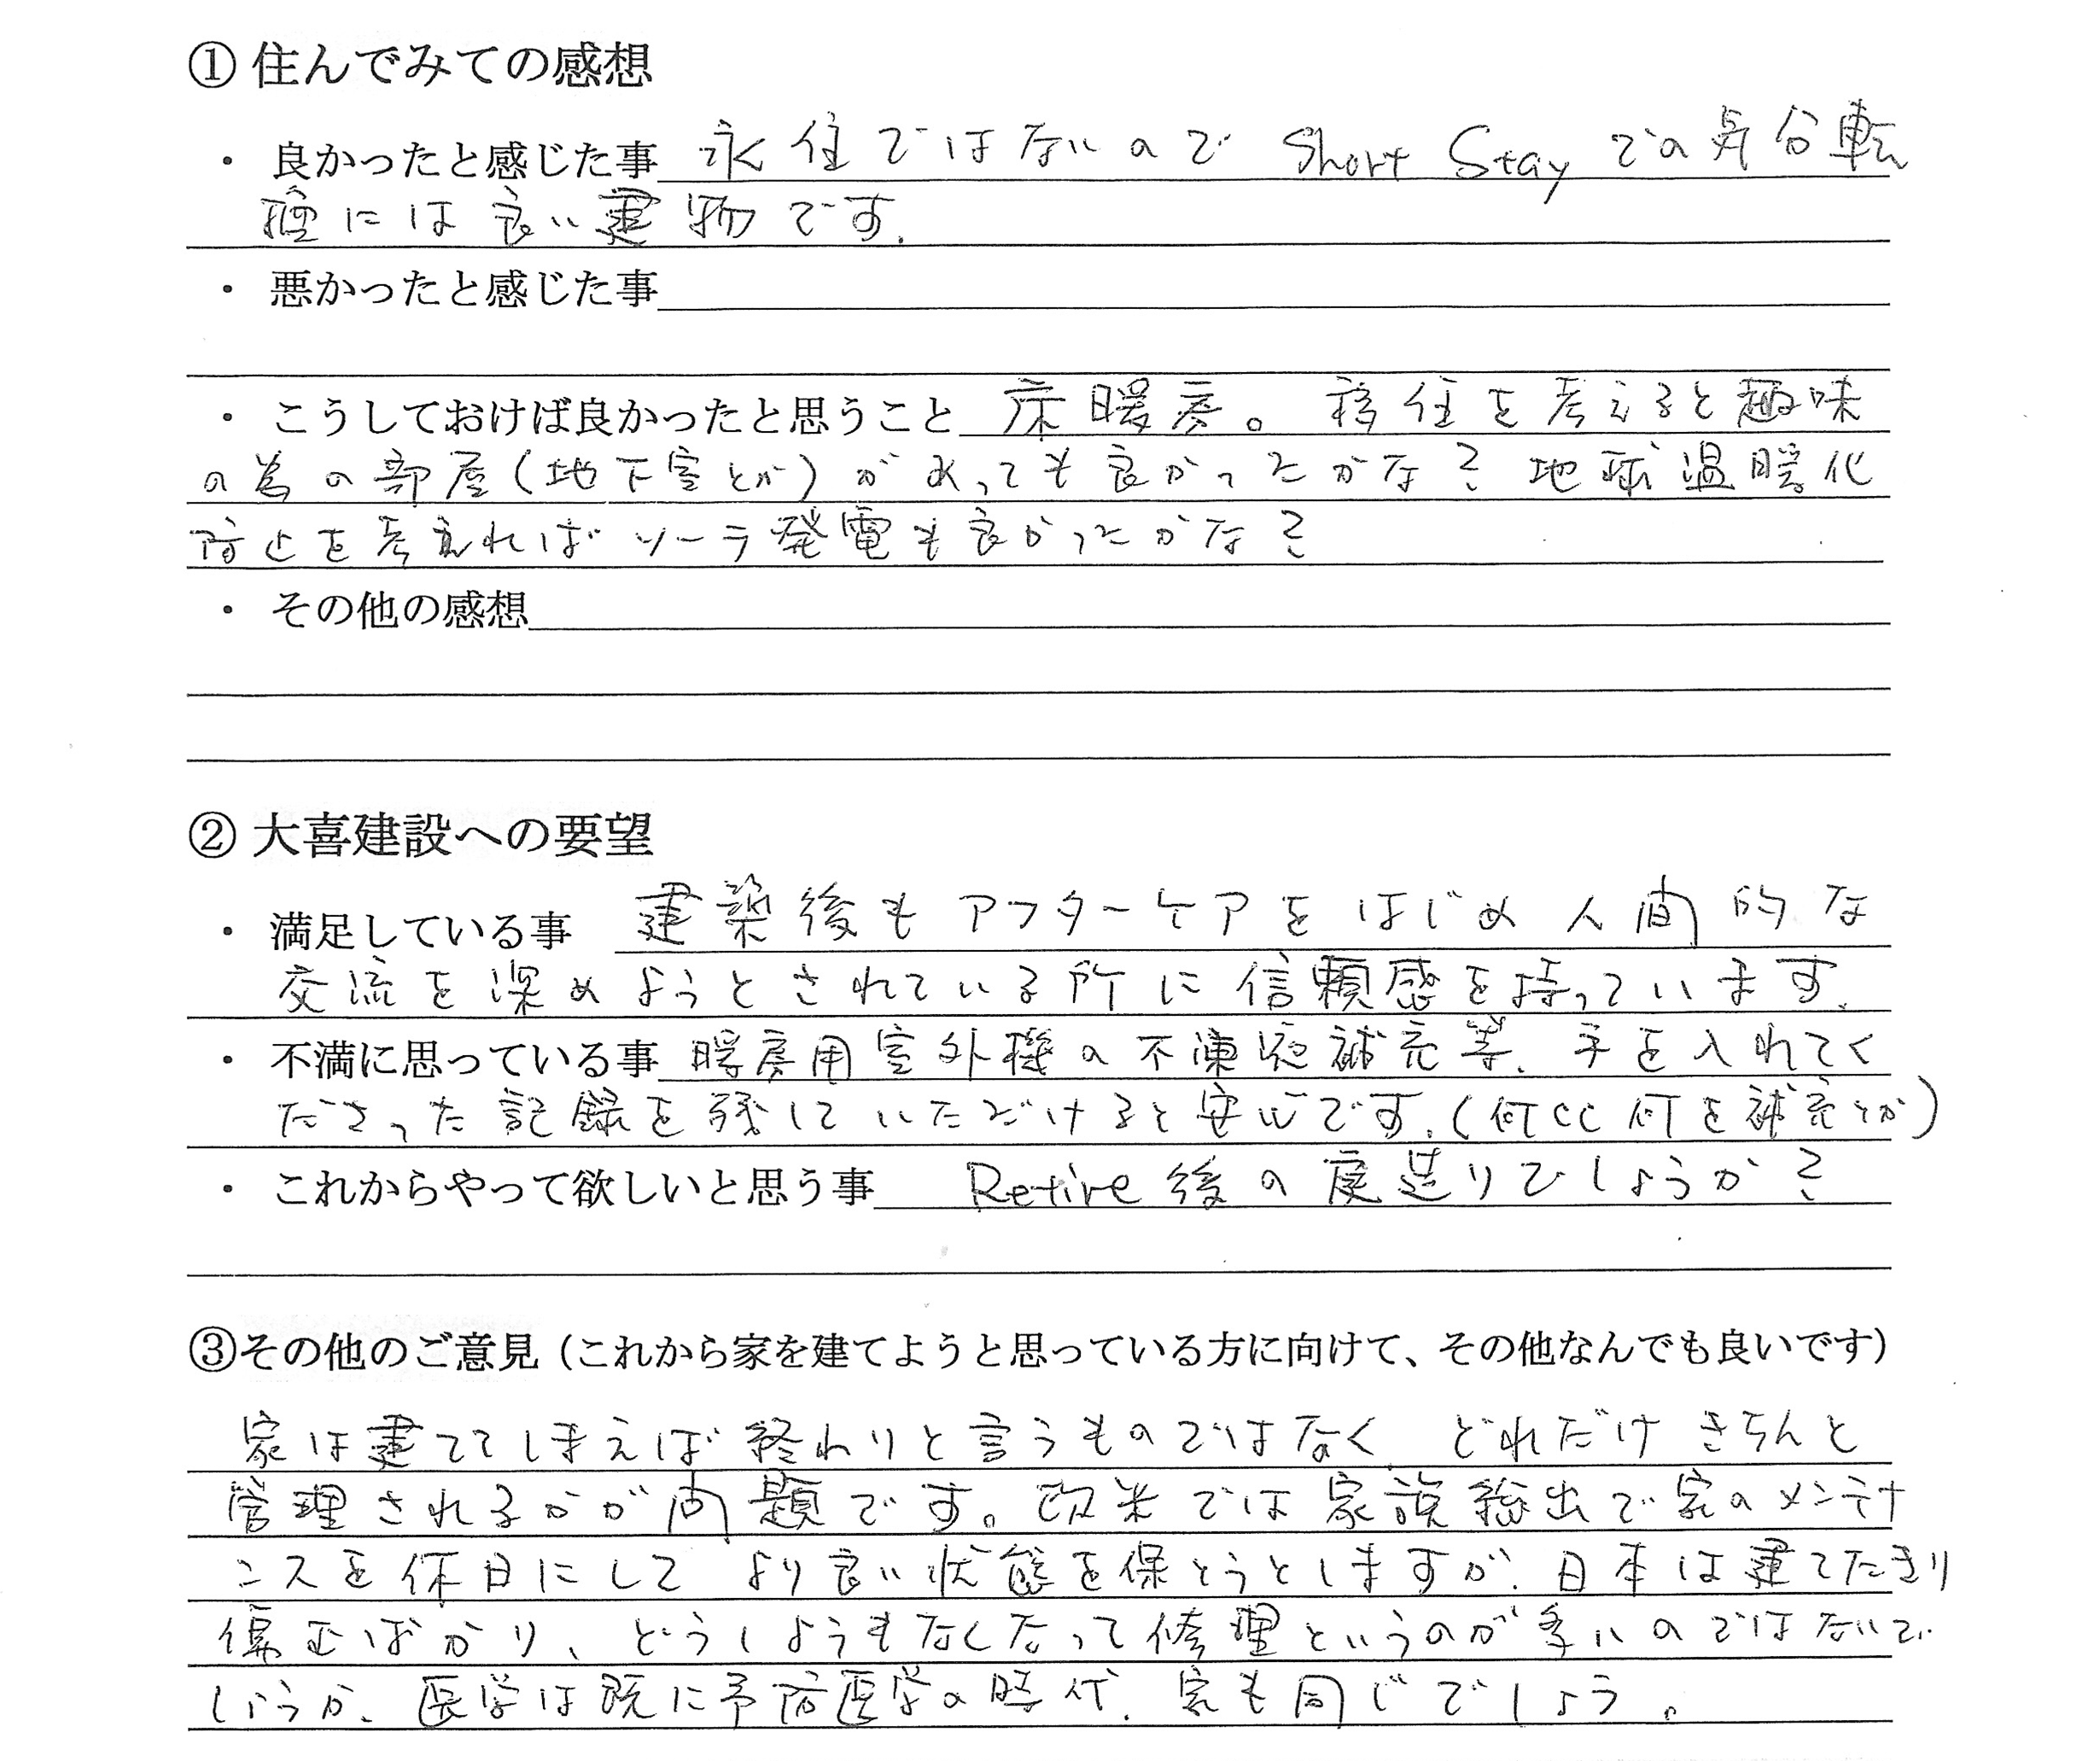 ① 住んでみての感想
・ 良かったと感じた事 永住ではないので Short Stayでの気分転
換には良い建物です.
・ 悪かったと感じた事
・ こうしておけば良かったと思うこと 床暖房。移住を考えると趣味
の為の部屋(地下室とか)があっても良かったかな? 地球温暖化
防止を考えればソーラ発電も良かったかな?
・ その他の感想
② 大喜建設への要望
・ 満足している事 建築後もアフターケアをはじめ人間的な
交流を深めようとされている所に信頼感を持っています.
・ 不満に思っている事 暖房用室外機の不凍液補充等、手を入れてく
ださった記録を残していただけると安心です.(何cc何を補充とか)
・ これからやって欲しいと思う事 Retire後の庭造りでしょうか?
③その他のご意見(これから家を建てようと思っている方に向けて、その他なんでも良いです)
家は建ててしまえば終わりと言うものではなく、どれだけきちんと
管理されるかが問題です。欧米では家族総出で家のメンテナ
ンスを休日にして より良い状態を保とうとしますが、日本は建てたきり
傷むばかり、どうしようもなくなって修理というのが多いのではないで
しょうか、医学は既に予防医学の時代、家も同じでしょう。